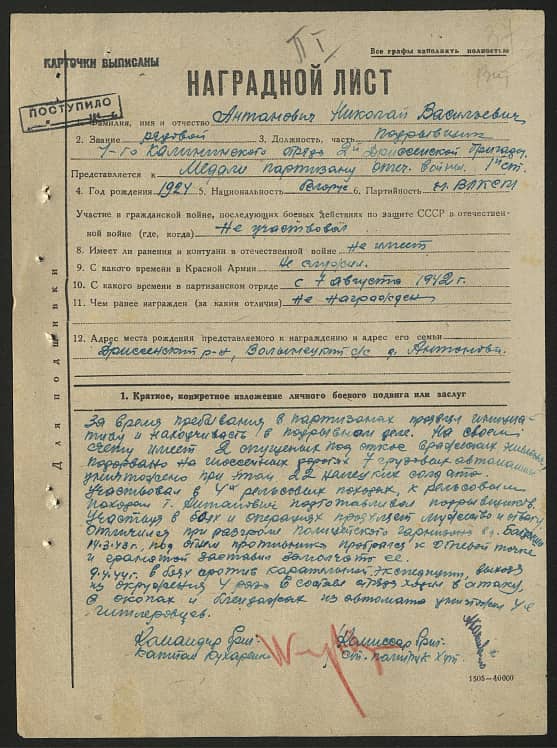 Все графы заполнять полностью
КАРТОЧКИ ВЫПИСАНЫ
НАГРАДНОЙ ЛИСТ
ПОСТУПИЛО
Фамилия, имя и отчество Антанович Николай Васильевич
2. Звание рядовой 3. Должность, часть подрывник
1-го Калининского отряда 2й Дриссенской бригады
Представляется к Медали партизану отеч. войны. 1й ст.
4. Год рождения 1924 5. Национальность белорус 6. Партийность чл. ВЛКСМ
Участие в гражданской войне, последующих боевых действиях по защите СССР в отечествен-
ной войне (где, когда) Не участвовал
8. Имеет ли ранения и контузии в отечественной войне Не имеет
9. С какого времени в Красной Армии Не служил.
10. С какого времени в партизанском отряде с 7 августа 1942 г.
11. Чем ранее награжден (за какие отличия) Не награжден
12. Адрес места рождения представляемого к награждению и адрес его семьи
Дриссенский р-н, Волынецкий с/с д. Антонова.
Для подшивки
1. Краткое, конкретное изложение личного боевого подвига или заслуг
За время пребывания в партизанах проявил инициа-
тиву и находчивость в подрывном деле. На своем
счету имеет 2 спущенных под откос вражеских эшелона
Подорвано на шоссейных дорогах 7 грузовых автомашин
уничтожено при этом 22 немецких солдата
Участвовал в 4х рельсовых походах, к рельсовым
походам т. Антанович подготавливал подрывников.
Участвуя в боях и операциях проявляет мужество и отвагу
Отличился при разгроме полицейского гарнизона в д.
14.3.43 г. под огнем противника пробрался к огневой точке
и гранатой заставил замолчать ее
9.4.44 г. в бою против карательной экспедиции, выходя
из окружения 4 раза в составе отряда ходил в атаку,
в окопах и блиндажах из автомата уничтожил 4-х
гитлеровцев.
Командир бриг. Комиссар бриг.
Капитан Кухаренко ст. политрук
1505-40000